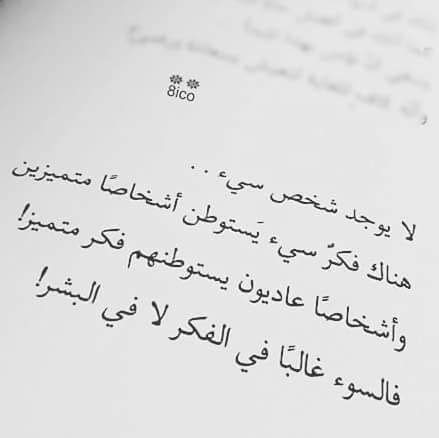 8ico
لا يوجد شخص سيء . .
هناك فكرٌ سيء يَستوطن أشخاصًا متميزين
وأشخاصًا عاديون يستوطنهم فكر متميز!
فالسوء غالبًا في الفكر لا في البشر!